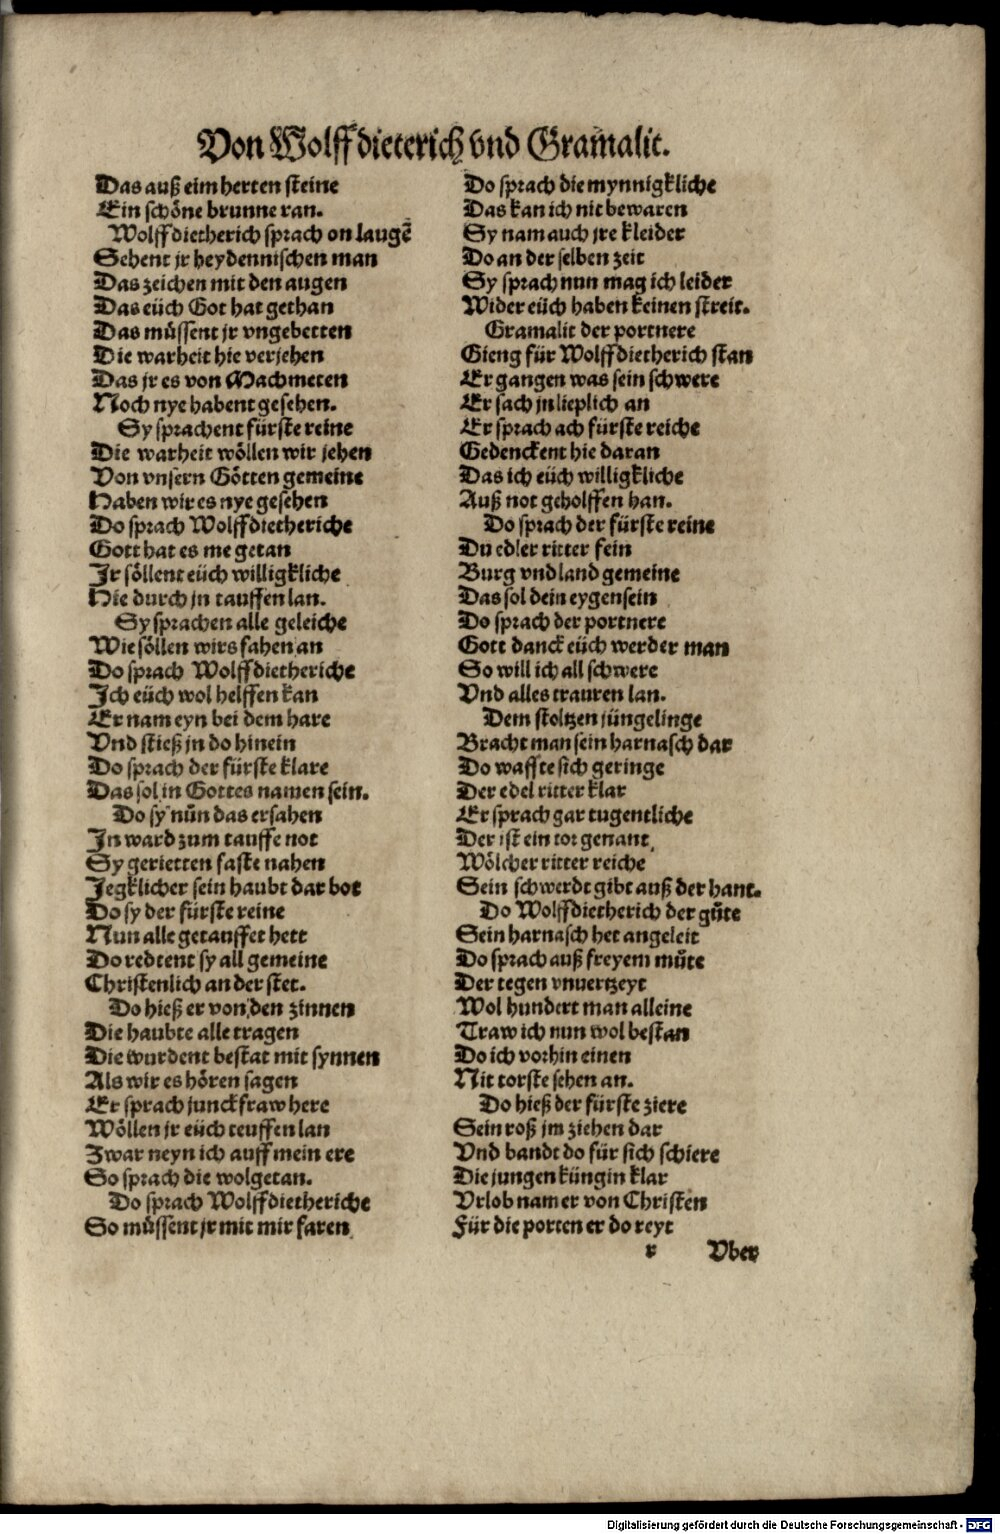 Von Wolffdieterich vnd Gram̃alit.
Das auß eim herten steine
Ein schöne brunne ran.
Wolffdietherich sprach on laugẽ
Sehent jr heydennischen man
Das zeichen mit den augen
Das eüch Got hat gethan
Das müssent jr vngebetten
Die warheit hie verjehen
Das jr es von Machmeten
Noch nye habent gesehen.
Sy sprachent fürste reine
Die warheit wöllen wir jehen
Von vnsern Götten gemeine
Haben wir es nye gesehen
Do sprach Wolffdietheriche
Gott hat es me getan
Jr söllent eüch willigkliche
Hie durch jn tauffen lan.
Sy sprachen alle geleiche
Wie söllen wirs fahen an
Do sprach Wolffdietheriche
Jch eüch wol helffen kan
Er nam eyn bei dem hare
Vnd stieß jn do hinein
Do sprach der fürste klare
Das sol in Gottes namen sein.
Do sy nůn das ersahen
Jn ward zum tauffe not
Sy gerietten faste nahen
Jegklicher sein haubt dar bot
Do sy der fürste reine
Nun alle getauffet hett
Do redtent sy all gemeine
Christenlich an der stet.
Do hieß er von den zinnen
Die haubte alle tragen
Die wurdent bestat mit synnen
Als wir es hören sagen
Er sprach junckfraw here
Wöllen jr eüch teuffen lan
Zwar neyn ich auff mein ere
So sprach die wolgetan.
Do sprach Wolffdietheriche
So müssent jr mit mir faren
Do sprach die mynnigkliche
Das kan ich nit bewaren
Sy nam auch jre kleider
Do an der selben zeit
Sy sprach nun mag ich leider
Wider eüch haben keinen streit.
Gramalit der portnere
Gieng für Wolffdietherich stan
Ergangen was sein schwere
Er sach jn lieplich an
Er sprach ach fürste reiche
Gedenckent hie daran
Das ich eüch willigkliche
Auß not geholffen han.
Do sprach der fürste reine
Du edler ritter fein
Burg vnd land gemeine
Das sol dein eygen sein
Do sprach der portnere
Gott danck eüch werder man
So will ich all schwere
Vnd alles trauren lan.
Dem stoltzen jüngelinge
Bracht man sein harnasch dar
Do waffte sich geringe
Der edel ritter klar
Er sprach gar tugentliche
Der ist ein tor genant
Wölcher ritter reiche
Sein schwerdt gibt auß der hant.
Do Wolffdietherich der gůte
Sein harnasch het angeleit
Do sprach auß freyem můte
Der tegen vnuertzeyt
Wol hundert man alleine
Traw ich nun wol bestan
Do ich vorhin einen
Nit torste sehen an.
Do hieß der fürste ziere
Sein roß jm ziehen dar
Vnd bandt do für sich schiere
Die jungen küngin klar
Vrlob nam er von Christen
Für die porten er do reyt
r Vber
Digitalisierung gefördert durch die Deutsche Forschungsgemeinschaft - DFG